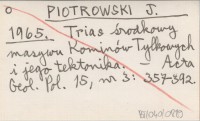 PIOTROWSKI J.
1965. Trias środkowy
masywu Kominów Tylkowych
i jego tektonika. Acta
Geol. Pol. 15, nr 3: 357-392